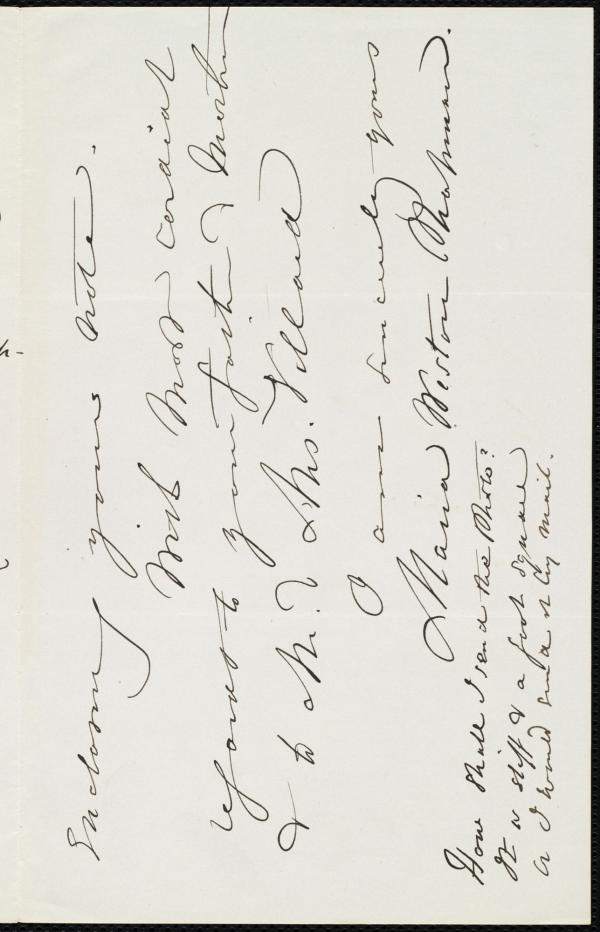 Enclosing your note.
With most cordial
regards to your father & mother
& to Mr. & Mrs. Villard
I am sincerely yours
Maria Weston Chapman.
How shall I send the Photo?
It is stiff & a foot square
or I would send it by mail.